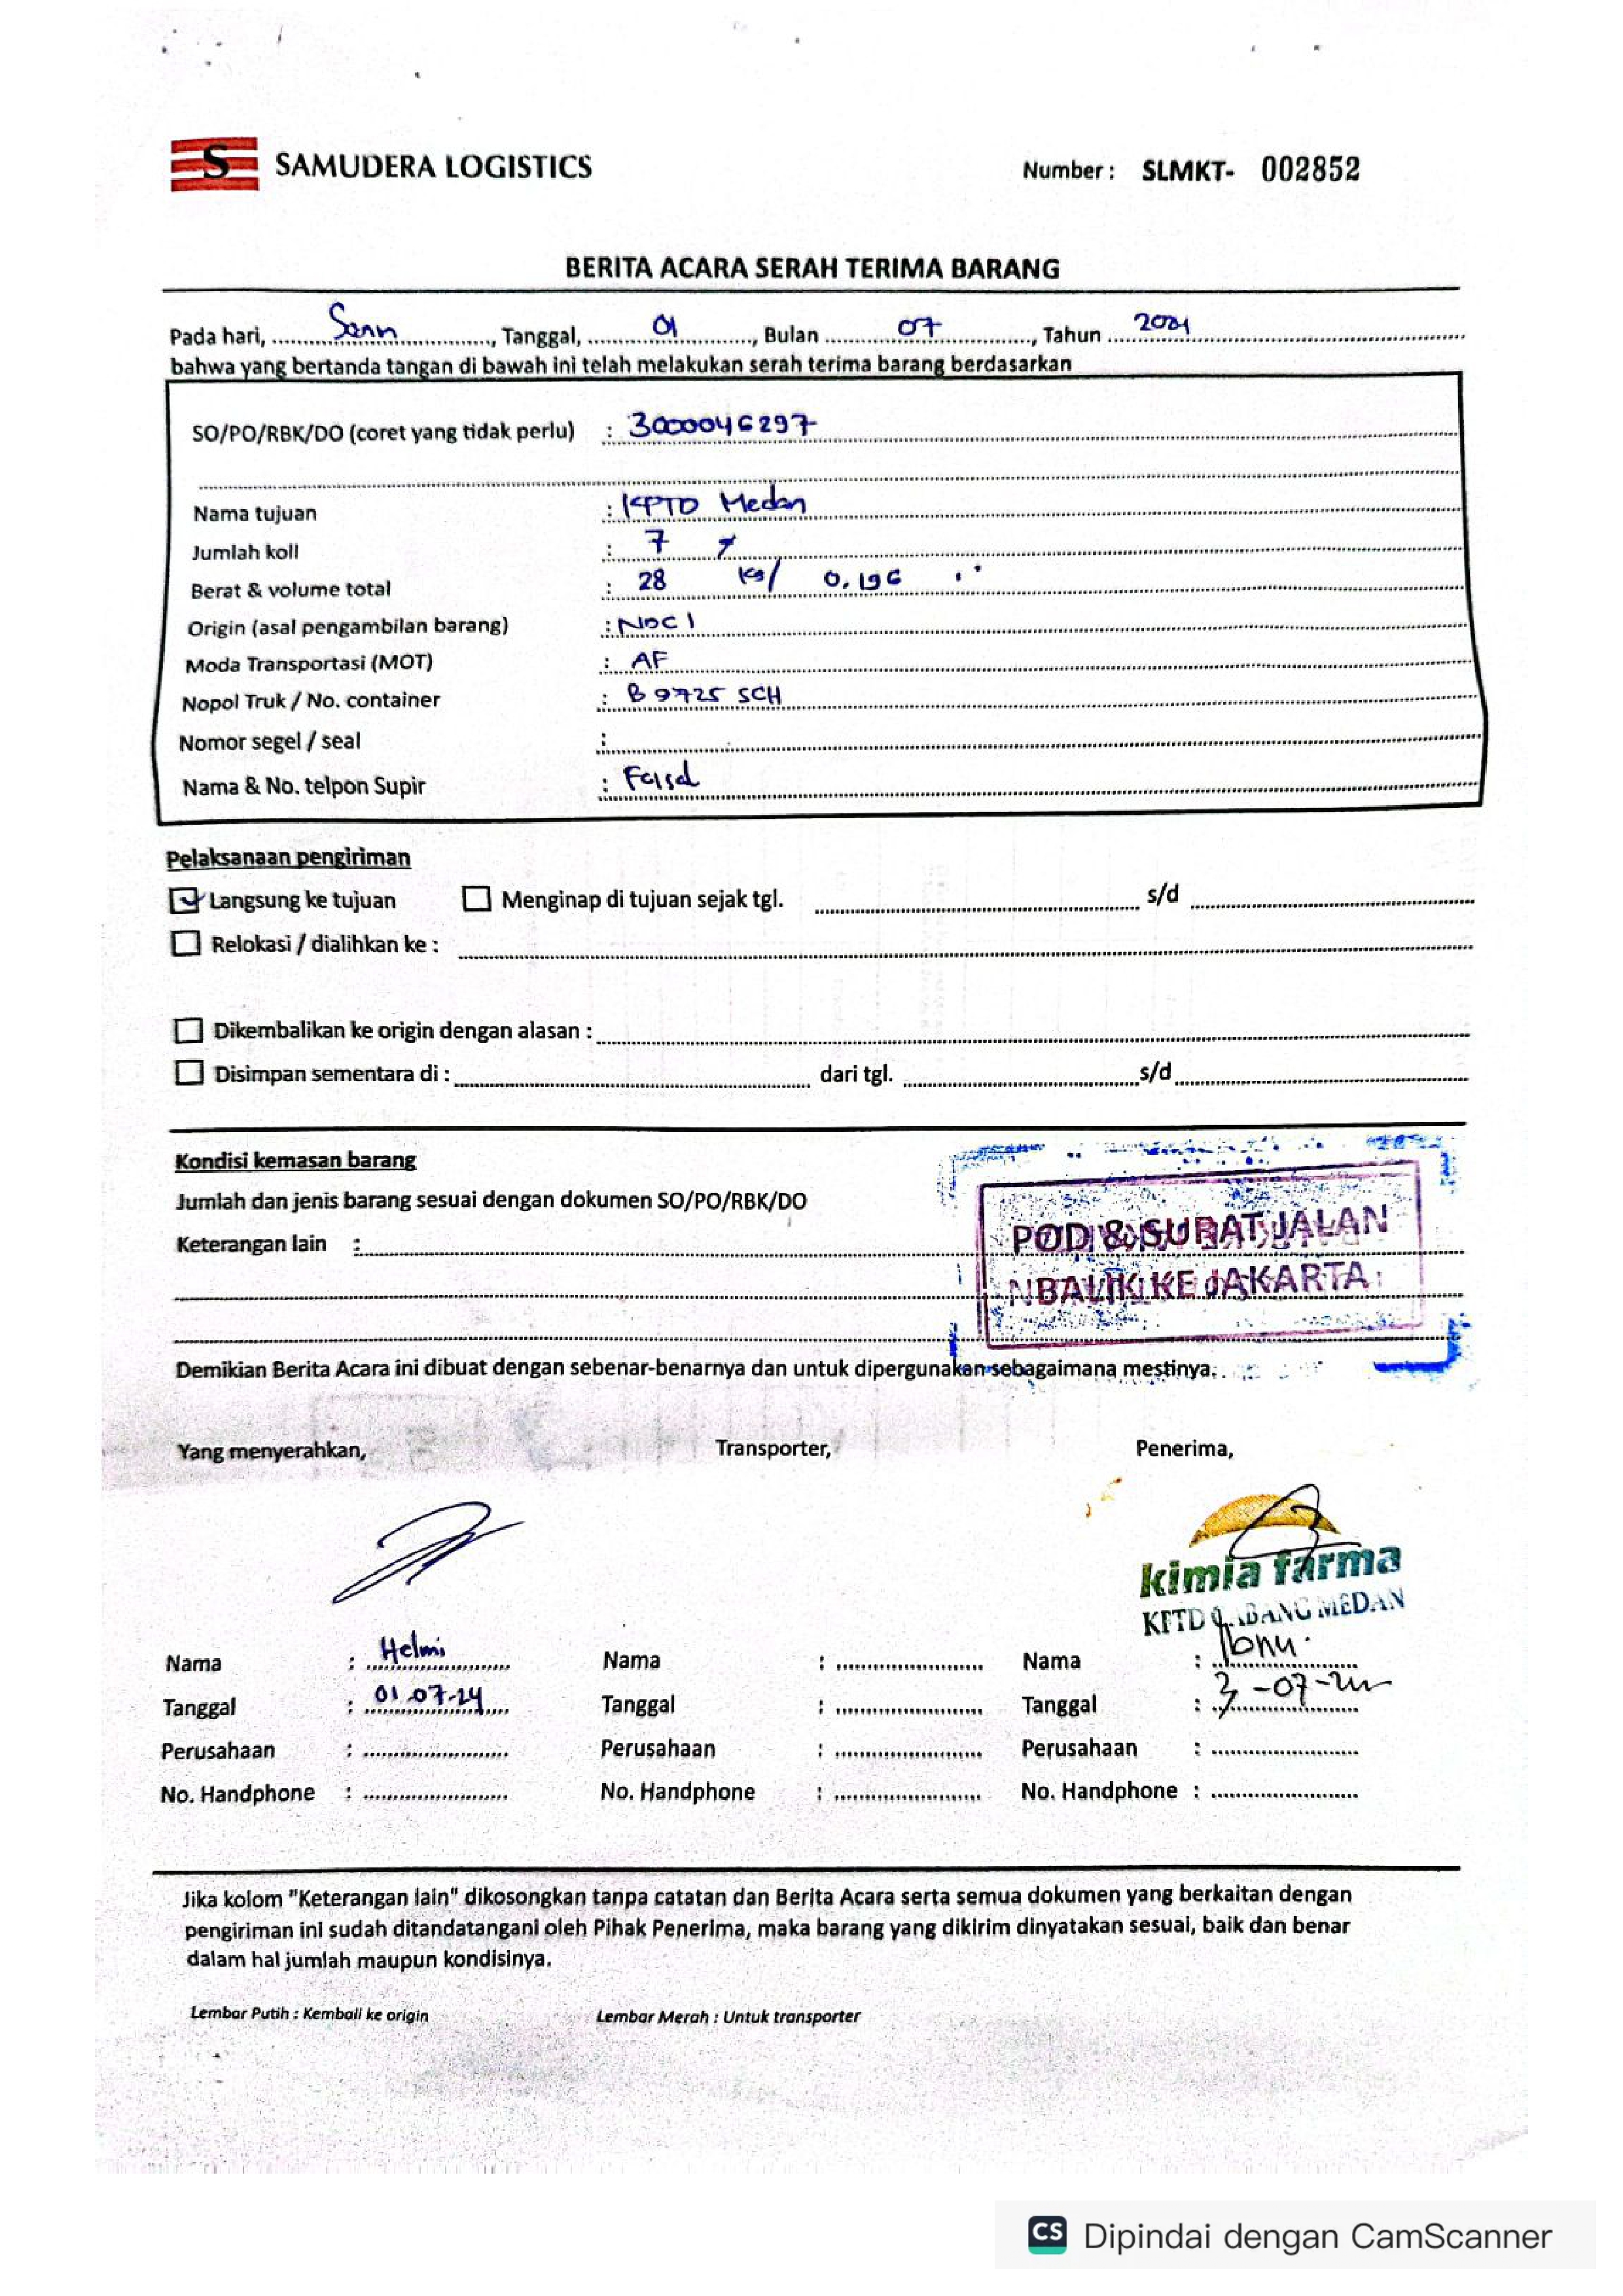 S SAMUDERA LOGISTICS
Number : SLMKT- 002852
BERITA ACARA SERAH TERIMA BARANG
Pada hari, Senin, Tanggal, 01, Bulan 07, Tahun
bahwa yang bertanda tangan di bawah ini telah melakukan serah terima barang berdasarkan
SO/PO/RBK/DO (coret yang tidak perlu) : 3000046297
Nama tujuan : KFTD Medan
Jumlah koll : 7
Berat & volume total : 28 Kg/ 0,196
Origin (asal pengambilan barang) : NDC 1
Moda Transportasi (MOT) : AF
Nopol Truk / No. container : B 9725 SCH
Nomor segel / seal :
Nama & No. telpon Supir : Faisal
Pelaksanaan pengiriman
Langsung ke tujuan Menginap di tujuan sejak tgl. s/d
Relokasi / dialihkan ke :
Dikembalikan ke origin dengan alasan :
Disimpan sementara di : dari tgl. s/d
Kondisi kemasan barang
Jumlah dan jenis barang sesuai dengan dokumen SO/PO/RBK/DO
Keterangan lain :
POD & SURAT JALAN
BALIK KE JAKARTA
Demikian Berita Acara ini dibuat dengan sebenar-benarnya dan untuk dipergunakan sebagaimana mestinya.
Yang menyerahkan, Transporter, Penerima,
kimia farma
KFTD CABANG MEDAN
Nama : Helmi Nama : Nama : Ibnu
Tanggal : 01-07-24 Tanggal : Tanggal : 3-07-24
Perusahaan : Perusahaan : Perusahaan :
No. Handphone : No. Handphone : No. Handphone :
Jika kolom "Keterangan lain" dikosongkan tanpa catatan dan Berita Acara serta semua dokumen yang berkaitan dengan
pengiriman ini sudah ditandatangani oleh Pihak Penerima, maka barang yang dikirim dinyatakan sesuai, baik dan benar
dalam hal jumlah maupun kondisinya.
Lembar Putih : Kembali ke origin Lembar Merah : Untuk transporter
CS Dipindai dengan CamScanner